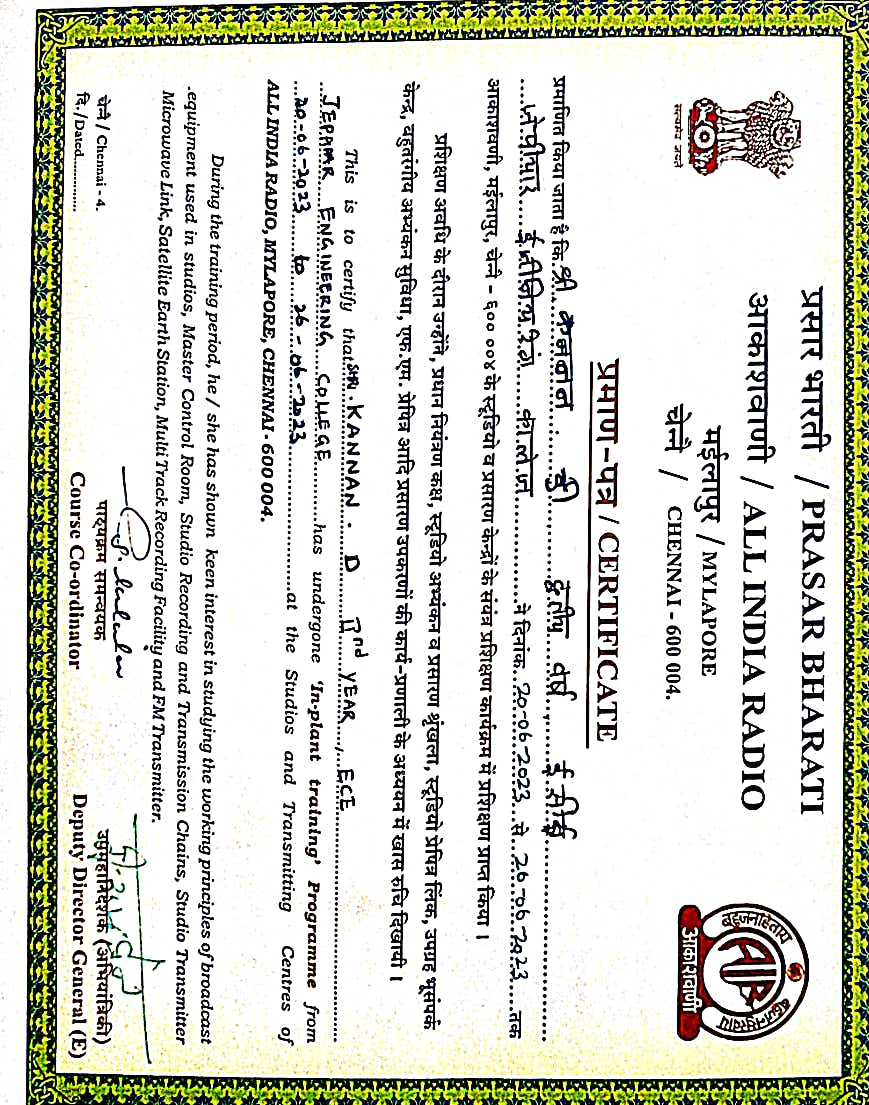 प्रसार भारती / PRASAR BHARATI
आकाशवाणी / ALL INDIA RADIO
मईलापुर / MYLAPORE
चेन्नै / CHENNAI - 600 004.
सत्यमेव जयते
बहुजनहिताय बहुजनसुखाय
AIR
आकाशवाणी
प्रमाण-पत्र / CERTIFICATE
प्रमाणित किया जाता है कि श्री कन्नन डी द्वितीय वर्ष, ई सी ई
जेपीयार इंजीनियरिंग कालेज ने दिनांक 20-06-2023 से 26-06-2023 तक
आकाशवाणी, मईलापुर, चेन्नै - ६०० ००४ के स्टूडियो व प्रसारण केन्द्रों के संयंत्र प्रशिक्षण कार्यक्रम में प्रशिक्षण प्राप्त किया ।
प्रशिक्षण अवधि के दौरान उन्होंने, प्रधान नियंत्रण कक्ष, स्टूडियो अभ्यंकन व प्रसारण श्रृंखला, स्टूडियो प्रेषित्र लिंक, उपग्रह भूसंपर्क
केन्द्र, बहुतरंगीय अभ्यंकन सुविधा, एफ.एम. प्रेषित्र आदि प्रसारण उपकरणों की कार्य-प्रणाली के अध्ययन में खास रुचि दिखायी ।
This is to certify that SHRI. KANNAN . D IInd YEAR, ECE
JEPPIAAR ENGINEERING COLLEGE has undergone 'In-plant training' Programme from
20-06-2023 to 26-06-2023 at the Studios and Transmitting Centres of
ALL INDIA RADIO, MYLAPORE, CHENNAI - 600 004.
During the training period, he / she has shown keen interest in studying the working principles of broadcast
equipment used in studios, Master Control Room, Studio Recording and Transmission Chains, Studio Transmitter
Microwave Link, Satellite Earth Station, Multi Track Recording Facility and FM Transmitter.
चेन्नै / Chennai - 4.
दि./Dated
पाठ्यक्रम समन्वयक
Course Co-ordinator
उपमहानिदेशक (अभियांत्रिकी)
Deputy Director General (E)